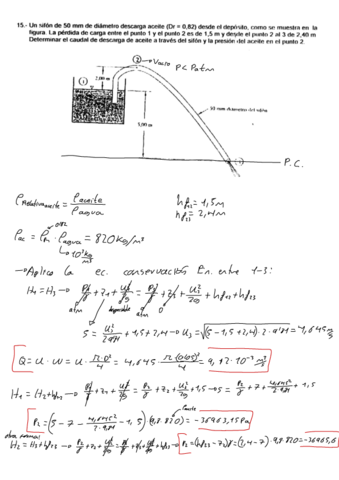 15.- Un sifón de 50 mm de diámetro descarga aceite (Dr = 0,82) desde el depósito, como se muestra en la
figura. La pérdida de carga entre el punto 1 y el punto 2 es de 1,5 m y desde el punto 2 al 3 de 2,40 m
Determinar el caudal de descarga de aceite a través del sifón y la presión del aceite en el punto 2.
② → Vacío P < Patm
①
2,00 m
5,00 m
50 mm diámetro del sifón
P.C.
ρRelativa aceite = ρaceite / ρagua
hf12 = 1,5m
hf23 = 2,4m
0,82
ρac = ρR · ρagua = 820 kg/m³
10³ kg/m³
→ Aplico la ec. conservación En. entre 1-3:
H1 = H3 → P1/γ + z1 + U1²/2g = P3/γ + z3 + U3²/2g + hf12 + hf23
atm despreciable atm 0
5 = U3²/2·9,81 + 1,5 + 2,4 → U3 = √(5-1,5+2,4)·2·9,81 = 4,645 m/s
Q = U · W = U · π·D²/4 = 4,645 · π·(0,05)²/4 = 9,12·10⁻³ m³/s
H1 = H2 + hf12 → P1/γ + z1 + U1²/2g = P2/γ + z2 + U2²/2g + 1,5 → 5 = P2/γ + 7 + 4,645²/2·9,81 + 1,5
P2 = (5 - 7 - 4,645²/2·9,81 - 1,5) · (9,8·820) = -36963,15 Pa
otra forma: